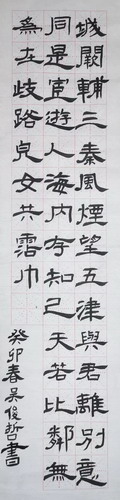 城闕輔三秦風煙望五津與君離別意
同是宦遊人海內存知己天若比鄰無
為在歧路兒女共霑巾
癸卯春吳俊哲書